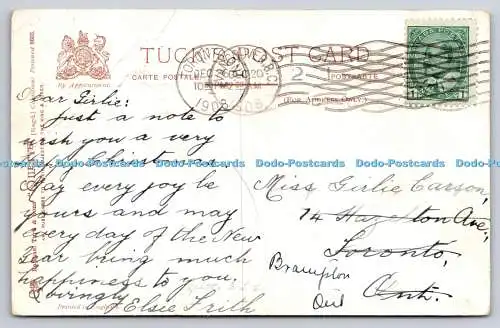 TUCK'S POST CARD
CARTE POSTALE
POSTKARTE
By Appointment
(FOR ADDRESS ONLY.)
TORONTO
DEC
1908
2
Dear Girlie:
Just a note to
wish you a very
Christmas
May every joy be
yours and may
every day of the New
Year bring much
happiness to you.
Lovingly
Elsie Frith
Miss Girlie Carson,
74 Hazelton Ave,
Toronto,
Ont.
Brampton
Ont
Dodo-Postcards Dodo-Postcards Dodo-Postcards Dodo-Postcards Dodo-Postcards